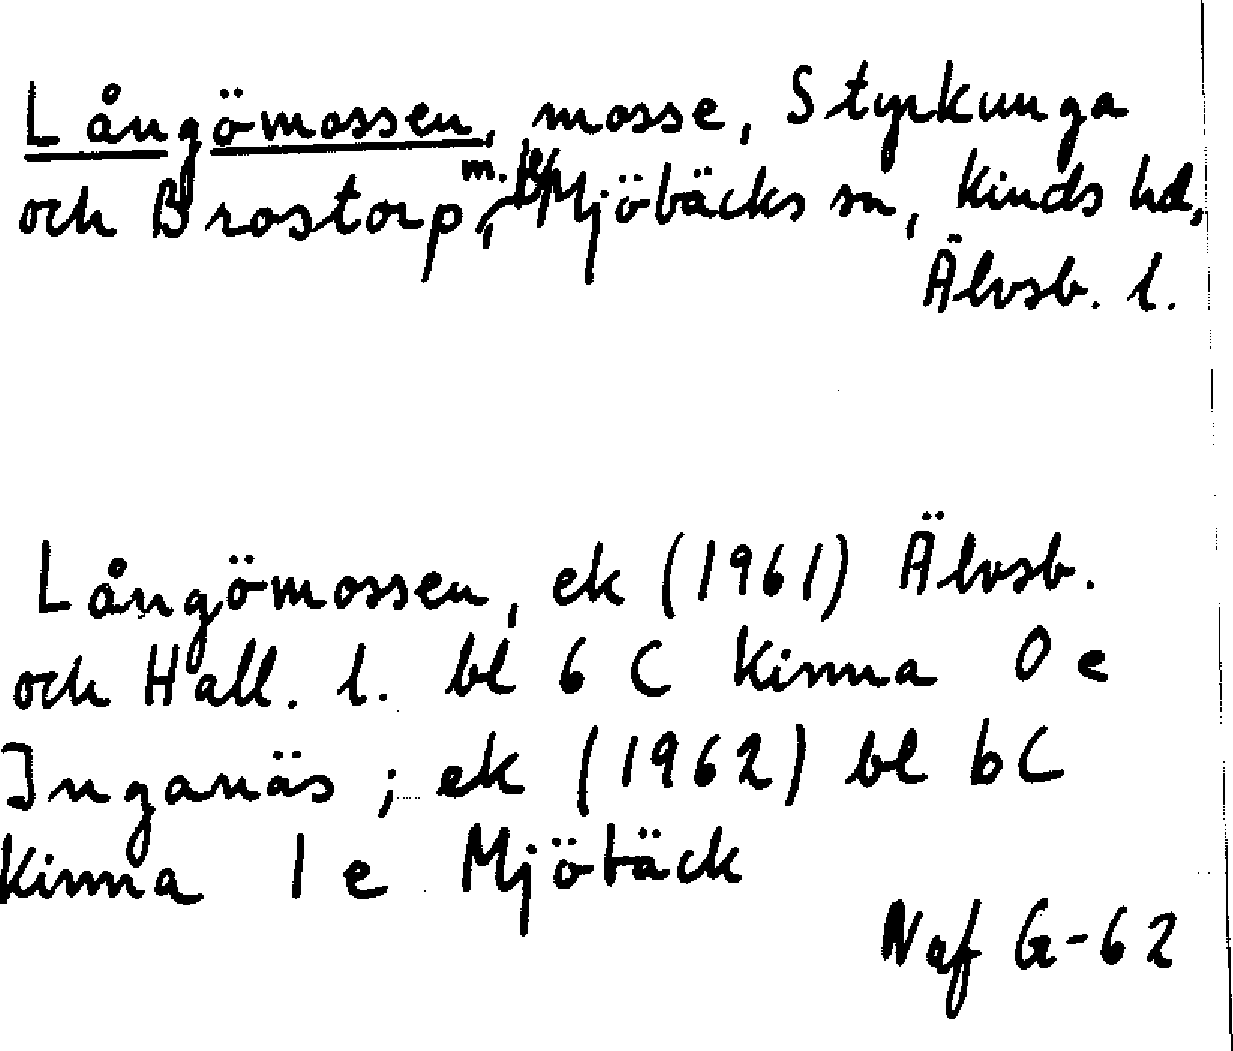 Långömossen, mosse, Styrkunga
och Brostorp m. fl, Mjöbäcks sn, Kinds hd,
Älvsb. l.
Långömossen, ek (1961) Älvsb.
och Hall. l. bl 6 C Kinna 0 e
Inganäs ; ek (1962) bl 6C
Kinna 1 e Mjöbäck
Naf G-62